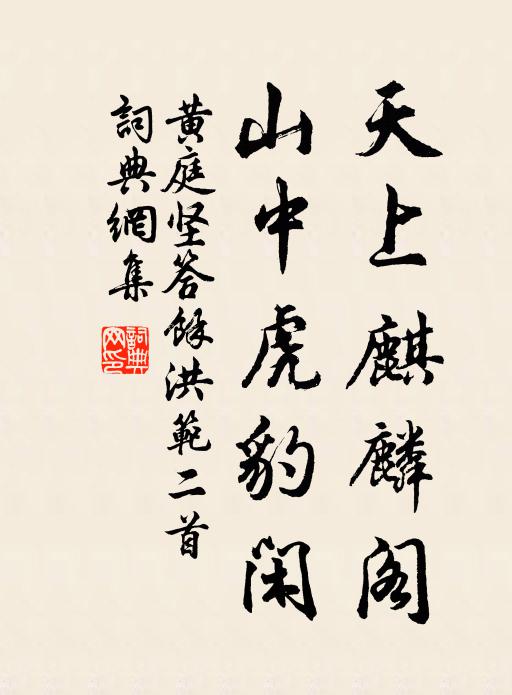 天上麒麟阁
山中虎豹闲
黄庭坚答餘洪範二首
詞典網集
詞典網印